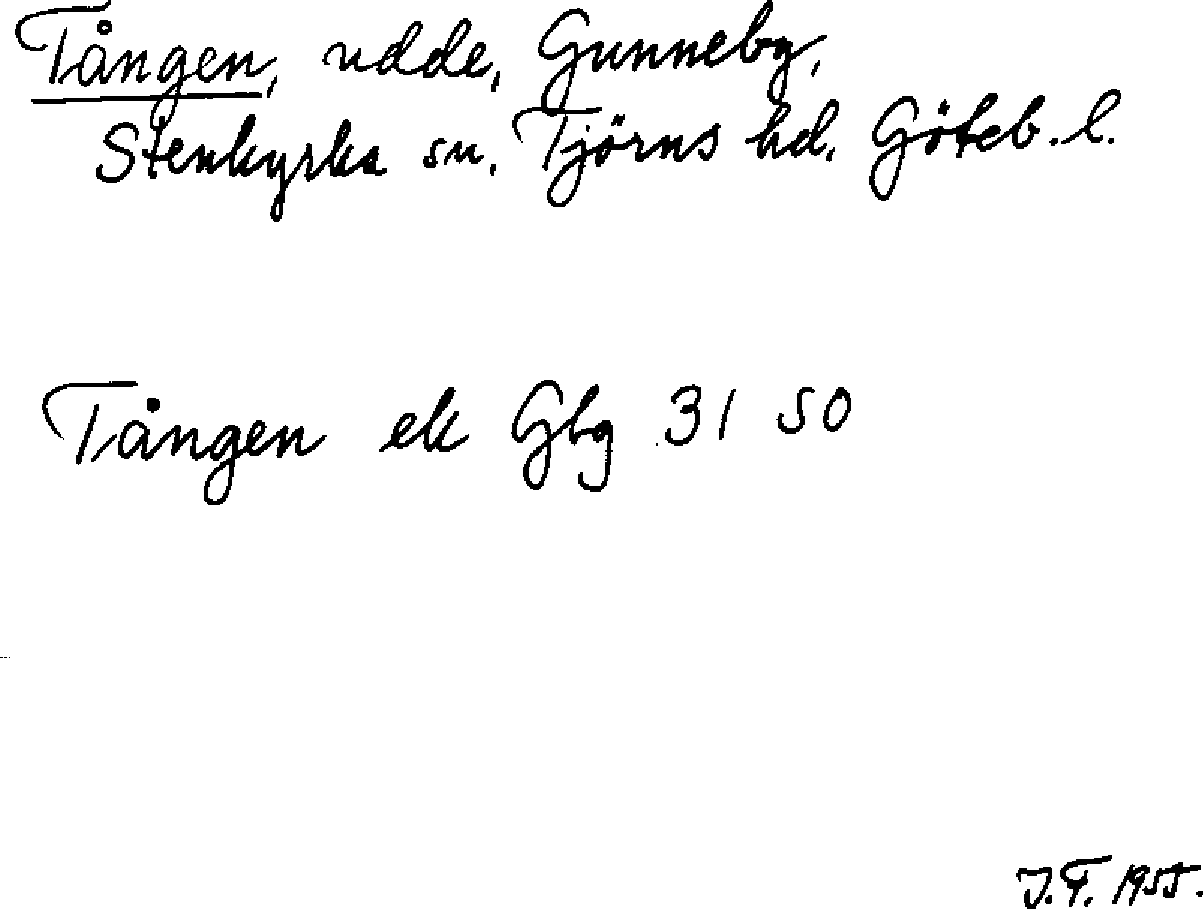 Tången, udde, Gunneby,
Stenkyrka sn. Tjörns hd. Göteb. l.
Tången ek Gbg 31 SO
J.F. 1955.